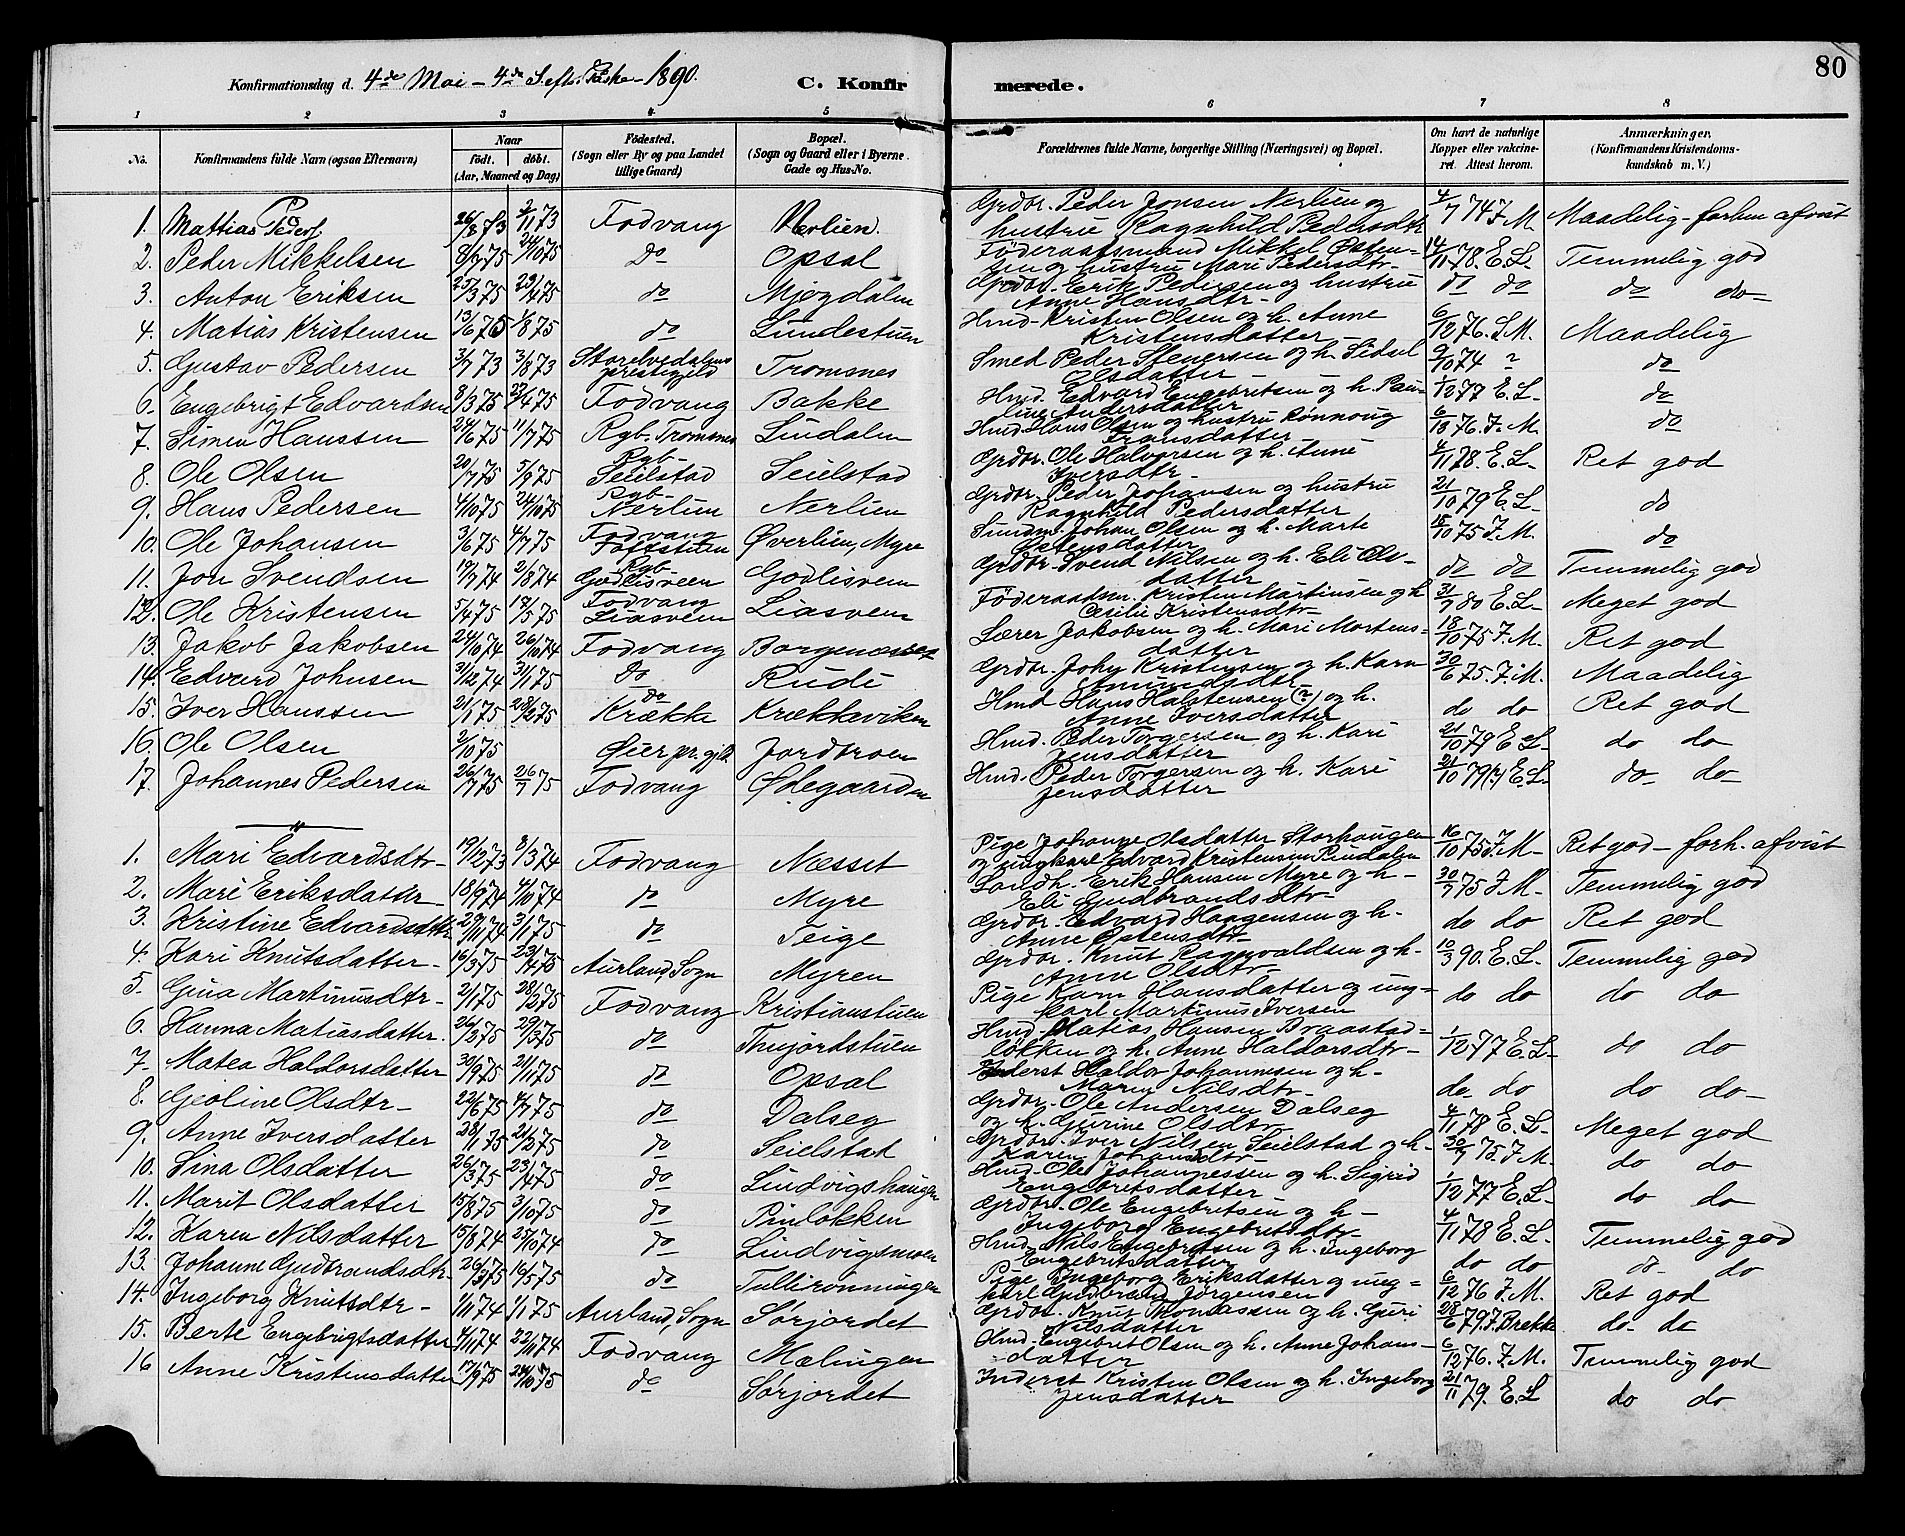 Konfirmationsdag d. 4de Mai – 4de S. eft. Paaske – 1890. C. Konfirmerede. 80
1 2 3 4 5 6 7 8
No. Konfirmandens fulde Navn (ogsaa Efternavn) Naar født. døbt. (Aar, Maaned og Dag) Fødested. (Sogn eller By og paa Landet tillige Gaard) Bopæl. (Sogn og Gaard eller i Byerne Gade og Hus-No. Forældrenes fulde Navne, borgerlige Stilling (Næringsvei) og Bopæl. Om havt de naturlige Kopper eller vakcineret. Attest herom. Anmærkninger. (Konfirmandens Kristendomskundskab m. V.)
1. Mattias Peders 26/8 73 2/11 73 Fodvang Nerlien. Grdbr. Peder Jonsen Nerlien og hustru Ragnhild Pedersdtr 4/7 74 J. M. Maadelig – forhen afvist
2. Peder Mikkelsen 8/7 75 24/10 75 Do Opsal Föderaadsmand Mikkel Østensen og hustru Mari Pedersdtr – 14/11 78. E. L. Temmelig god
3. Anton Eriksen 25/3 75 23/4 75 do Mjogdalen Grdbr. Erik Pedersen og hustru Anne Hansdtr – do do do do –
4. Matias Kristensen 13/6 75 1/8 75 do Lundestuen Hmd. Kristen Olsen og h. Anne Kristensdatter – 6/12 76. J. M. Maadelig
5. Gustav Pedersen 3/7 73 3/8 73 Storelvedalens prestegjeld Tromsnes Smed Peder Stenersen og h. Sidsel Olsdatter – 9/10 74 " do
6. Engebrigt Edvardsen 8/3 75 23/4 75 Fodvang Bakke Hmd. Edvard Engebretsen og h. Pauline Andersdatter 1/12 77 E. L. do
7. Simen Hanssen 24/6 75 11/7 75 Rgb. Tromsnes Lindalen Hmd. Hans Olsen og hustru Rønnoug Fransdatter – 6/10 76. J. M. do
8. Ole Olsen 20/7 75 5/9 75 Rgb. Seielstad Seielstad Grdbr. Ole Halvorsen og h. Anne Iversdtr – 4/11 78. E. L. Ret god
9. Hans Pedersen 4/10 75 24/10 75 Rgb. Nerlien Nerlien Grdbr. Peder Johansen og hustru Ragnhild Pedersdatter 21/10 79 E. L. do
10. Ole Johansen 3/6 75 4/7 75 Fodvang Toftstuen Øverlien, Myre Sundm. Johan Olsen og h. Marte Østensdatter 15/10 75 J. M. do
11. Jon Svendsen 19/7 74 2/8 74 Rgb. Godlisveen Godlisveen Grdbr. Svend Nilsen og h. Eli Olsdatter do do Temmelig god
12. Ole Kristensen 5/4 75 18/5 75 Fodvang Liasveen Liasveen Föderaadsm. Kristen Martinsen og h. Cecilie Kristensdtr – 31/7 80 E. L. Meget god
13. Jakob Jakobsen 24/10 74 26/10 74 Fodvang Borgenæsset Lærer Jakobsen og h. Mari Mortensdatter 18/10 75. J. M. Ret god
14. Edvard Johnsen 31/12 74 31/1 75 Do Rudi Grdbr. John Kristensen og h. Karn Amundsdtr 30/6 75. J. M. Maadelig
15. Iver Hanssen 21/1 75 28/2 75 do Krækka Krækkeviken Hmd Hans Halstensen (?) og h. Anne Iversdatter do do Ret god
16. Ole Olsen 2/10 75 Øier pr. gjld. Jordbroen Hmd. Peder Torgersen og h. Kari Jensdatter 21/10 79 E. L. do do
17. Johannes Pedersen 26/7 75 26/7 75 Fodvang Ødegaarden Hmd. Peder Torgersen og h. Kari Jensdatter 21/10 79 (?) E. L. do do
"
1. Mari Edvardsdtr – 19/12 73 8/3 74 Fodvang Næsset Pige Johanne Olsdatter Storhaugen og ungkarl Edvard Kristensen Rindalen 16/10 75 J. M. Ret god – forh. afvist
2. Mari Eriksdatter – 18/9 74 4/10 74 do Myre Landh. Erik Hansen Myre og h. Eli Gudbrandsdtr – 30/7 75 J. M. Temmelig god
3. Kristine Edvardsdatter 29/11 74 3/1 75 do Teige Grdbr. Edvard Haagensen og h. Anne Østensdtr – do do Ret god
4. Kari Knutsdatter – 16/3 75 23/4 75 Aurland, Sogn Myren Grdbr. Knut Ragnvaldsen og h. Anne Olsdtr – 10/3 90. E. L. Temmelig god
5. Gina Martinusdtr – 2/1 75 28/2 75 Fodvang Kristianstuen Pige Karn Hansdatter og ungkarl Martinus Iversen do do do do
6. Hanna Matiasdatter. 26/2 75 29/3 75 do Thujordstuen Hmd. Matias Hansen Braastadløkken og h. Anne Haldorsdtr – 1/12 77 E. L. do do
7. Matea Haldorsdatter 30/9 75 21/11 75 do Opsal Inderst Haldor Johannesen og h. Maren Nilsdtr – do do do do –
8. Geoline Olsdtr – 22/6 75 4/7 75 do Dalseg Grdbr. Ole Andersen Dalseg og h. Gurine Olsdtr 4/11 78 E. L. Meget god
9. Anne Iversdatter 28/1 75 21/2 75 do Seielstad Grdbr. Iver Nilsen Seielstad og h. Karen Johansdtr – 30/7 75. J. M. do do
10. Sina Olsdatter 26/3 75 23/4 75 do Lindvigshaugen Hmd. Ole Johannessen og h. Sigrid Engebretsdatter 1/12 77 E. L. do do
11. Marit Olsdatter 15/8 75 3/10 75 do Pinløkken Grdbr. Ole Engebretsen og h. Ingeborg Engebretsdtr 4/11 78 E. L. Temmelig god
12. Karen Nilsdatter 15/8 74 25/10 74 do Lindvigsmoen Hmd. Nils Engebretsen og h. Ingeborg Engebretsdatter do do do do
13. Johanne Gudbrandsdtr – 26/3 75 16/5 75 do Tullirønningen Pige Ingeborg Eriksdatter og ungkarl Gudbrand Jørgensen 6/12 76 J. M. Ret god
14. Ingeborg Knutsdtr – 1/11 74 1/1 75 Aurland, Sogn Sørjordet Grdbr. Knut Thomassen og h. Guri Nilsdatter 28/6 79. J. Brekke do – do
15. Berte Engebrigtsdatter 7/11 74 22/11 74 Fodvang Mælingen Hmd. Engebret Olsen og h. Anne Johansdatter 6/12 76. J. M. Temmelig god
16 Anne Kristensdatter 17/9 75 24/10 75 do Sørjordet Inderst Kristen Olsen og h. Ingeborg Jensdatter 21/11 79. E. L do do